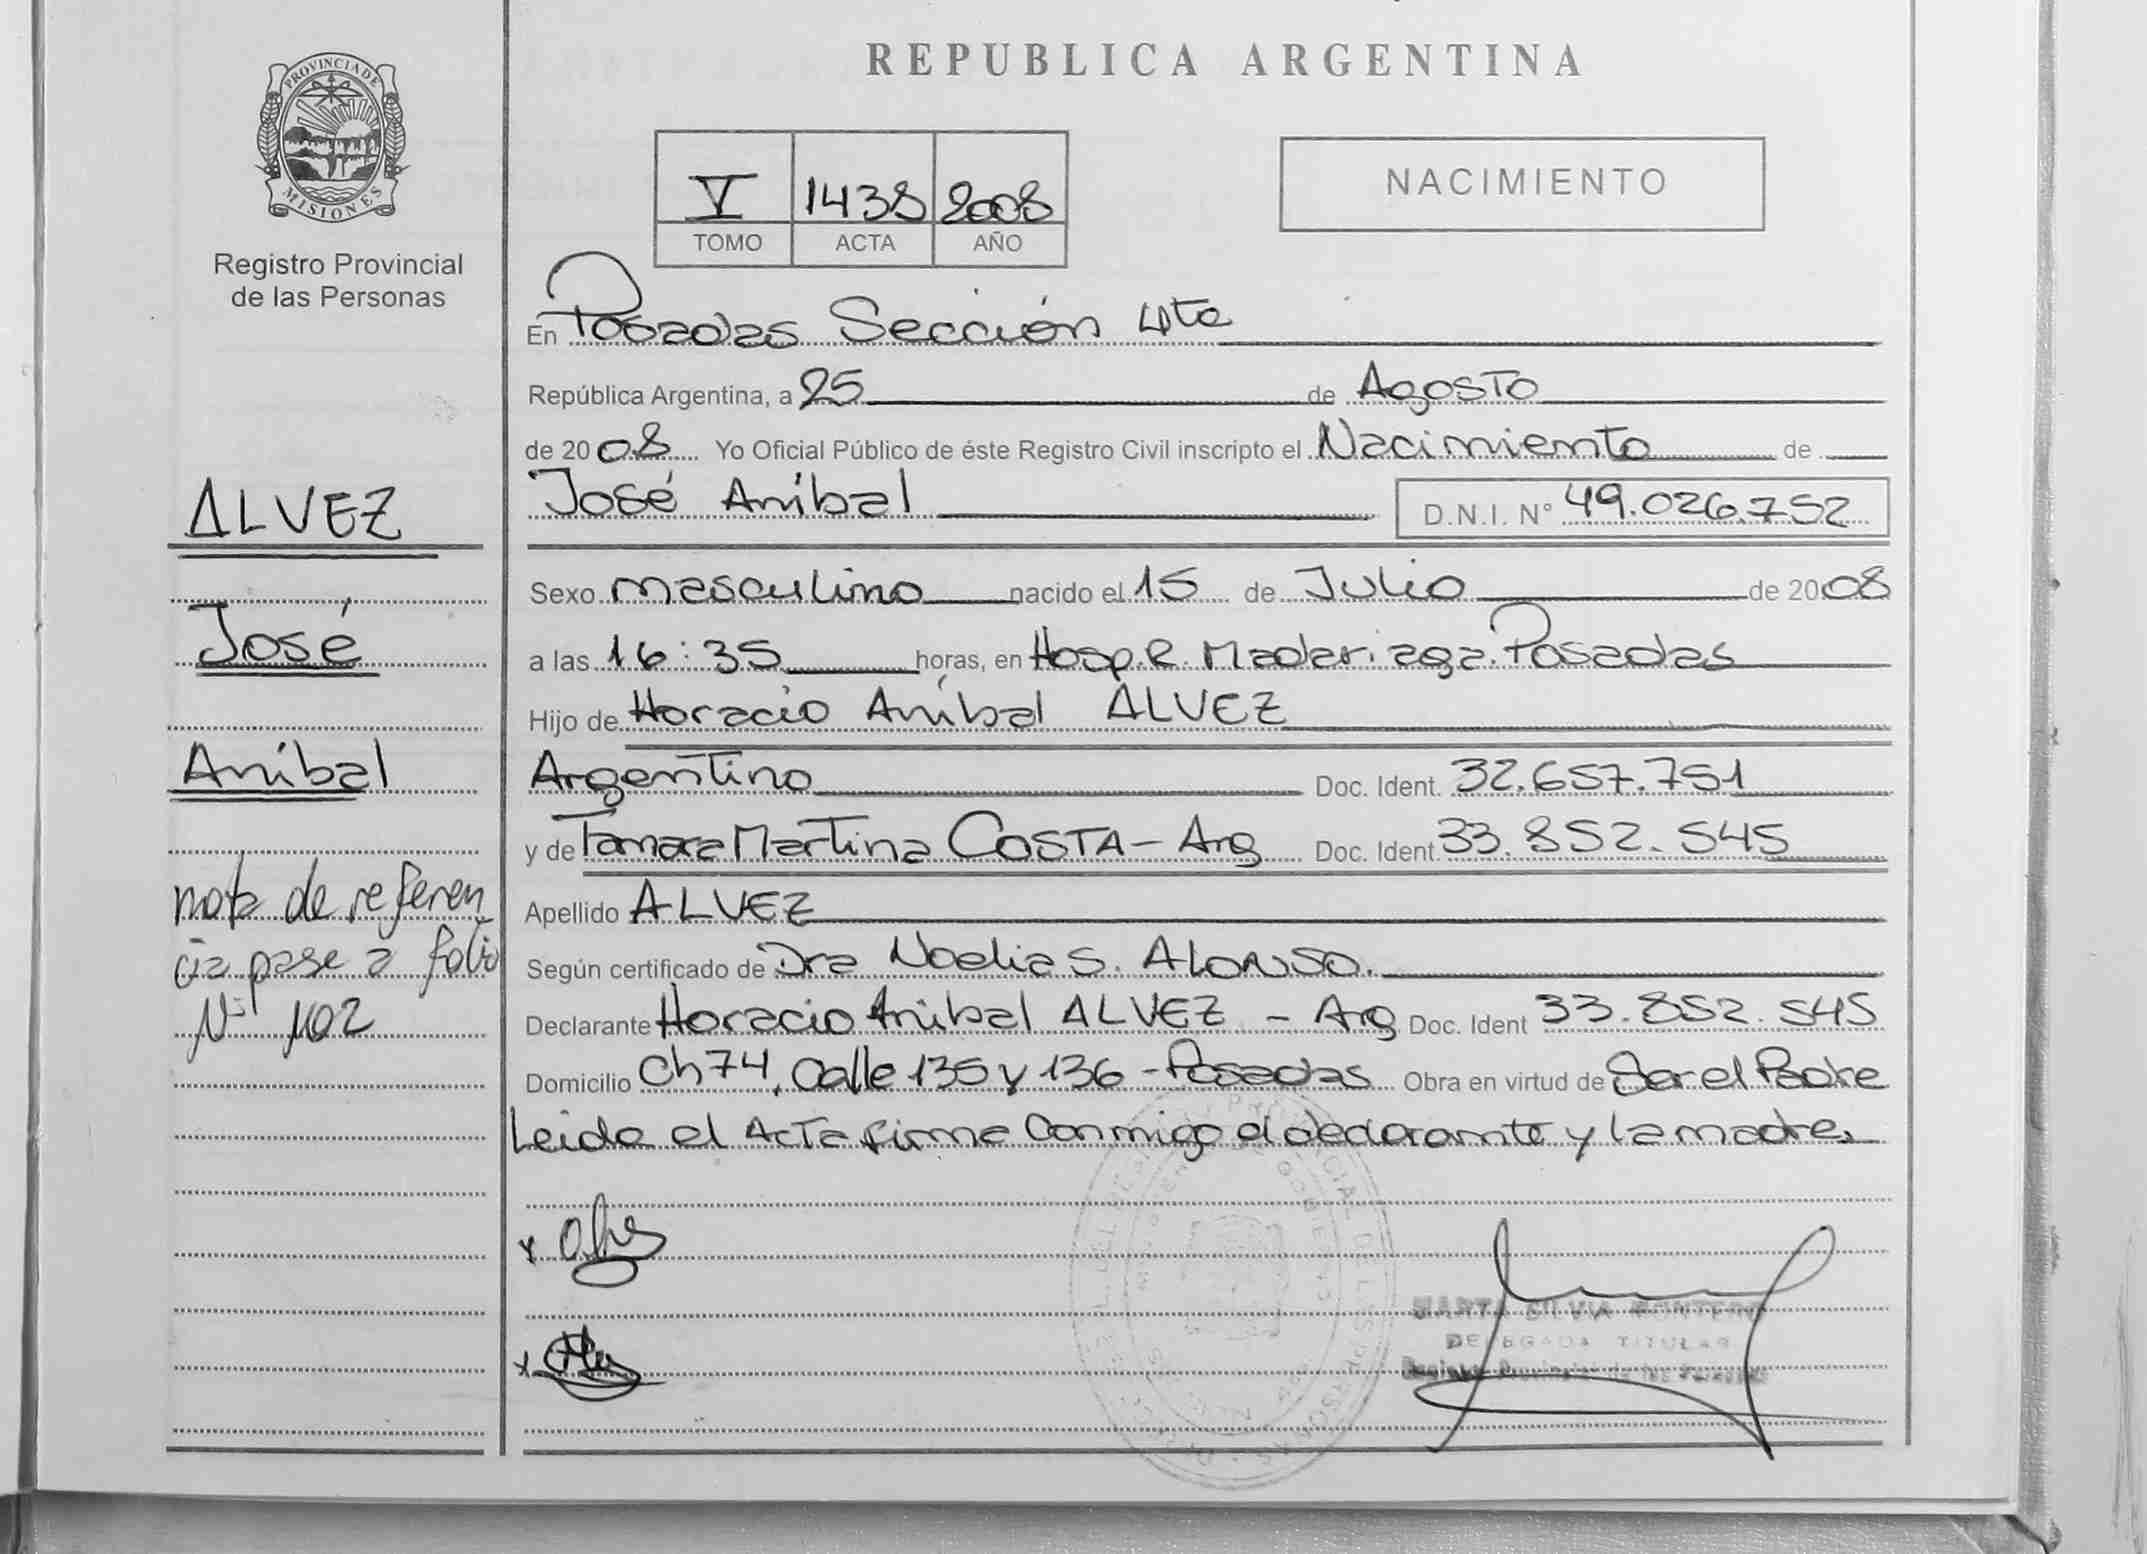 REPUBLICA ARGENTINA
PROVINCIA DE
MISIONES
Registro Provincial
de las Personas
V 1438 2008
TOMO ACTA AÑO
NACIMIENTO
En Posadas Sección 4ta
República Argentina, a 25 de Agosto
de 2008 Yo Oficial Público de éste Registro Civil inscripto el Nacimiento de
José Aníbal D.N.I. N° 49.026.752
Sexo masculino nacido el 15 de Julio de 2008
a las 16:35 horas, en Hosp. R. Madariaga. Posadas
Hijo de Horacio Aníbal ALVEZ
Argentino Doc. Ident. 32.657.751
y de Tamara Martina COSTA - Arg Doc. Ident. 33.852.545
Apellido ALVEZ
Según certificado de Dra Noelia S. ALONSO.
Declarante Horacio Aníbal ALVEZ - Arg Doc. Ident 33.852.545
Domicilio Ch 74, Calle 135 y 136 - Posadas Obra en virtud de Ser el Padre
Leida el Acta firma Conmigo el declarante y la madre.
MARTA SILVIA MONTERO
DELEGADA TITULAR
Registro Provincial de las Personas
ALVEZ
José
Aníbal
nota de referen
cia pase a folio
N° 102